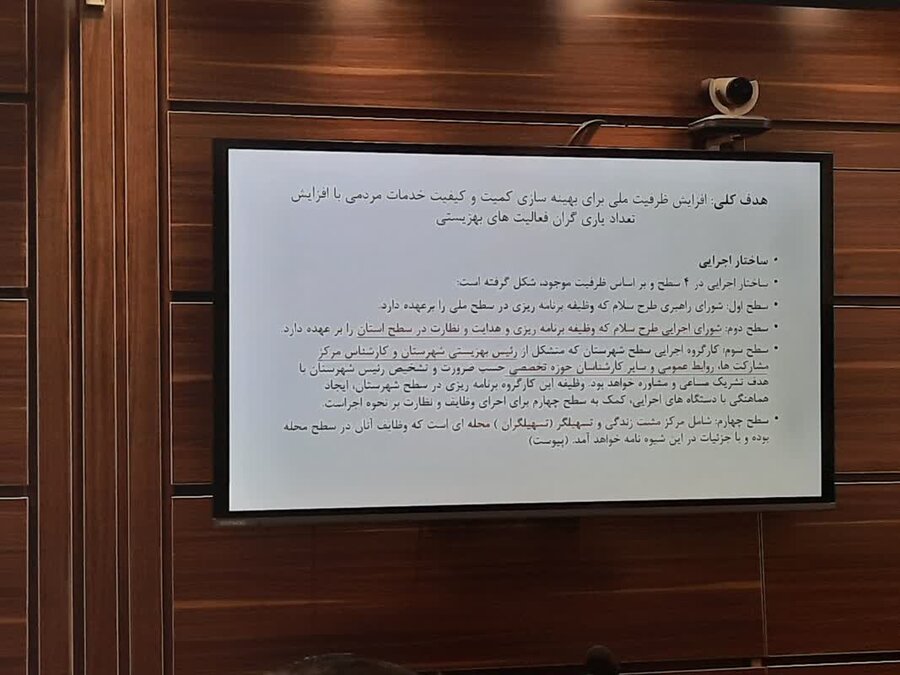 هدف کلی: افزایش ظرفیت ملی برای بهینه سازی کمیت و کیفیت خدمات مردمی با افزایش
تعداد یاری گران فعالیت های بهزیستی
• ساختار اجرایی
• ساختار اجرایی در ۴ سطح و بر اساس ظرفیت موجود، شکل گرفته است:
• سطح اول: شورای راهبری طرح سلام که وظیفه برنامه ریزی در سطح ملی را برعهده دارد.
• سطح دوم: شورای اجرایی طرح سلام که وظیفه برنامه ریزی و هدایت و نظارت در سطح استان را بر عهده دارد.
• سطح سوم: کارگروه اجرایی سطح شهرستان که متشکل از رئیس بهزیستی شهرستان و کارشناس مرکز
مشارکت ها، روابط عمومی و سایر کارشناسان حوزه تخصصی حسب ضرورت و تشخیص رئیس شهرستان با
هدف تشریک مساعی و مشاوره خواهد بود. وظیفه این کارگروه برنامه ریزی در سطح شهرستان، ایجاد
هماهنگی با دستگاه های اجرایی، کمک به سطح چهارم برای اجرای وظایف و نظارت بر نحوه اجراست.
• سطح چهارم: شامل مرکز مثبت زندگی و تسهیلگر (تسهیلگران ) محله ای است که وظایف آنان در سطح محله
بوده و با جزئیات در این شیوه نامه خواهد آمد. (پیوست)